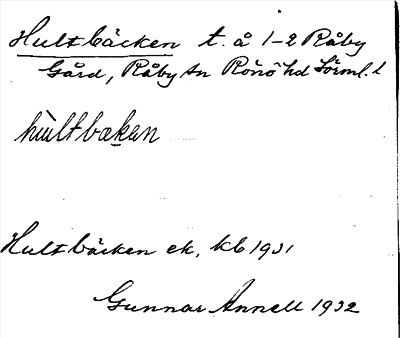 Hultbäcken t. å 1-2 Råby
Gård, Råby sn Rönö hd Sörml. l
hultbækan
Hultbäcken ek, kb 1931
Gunnar Annell 1932